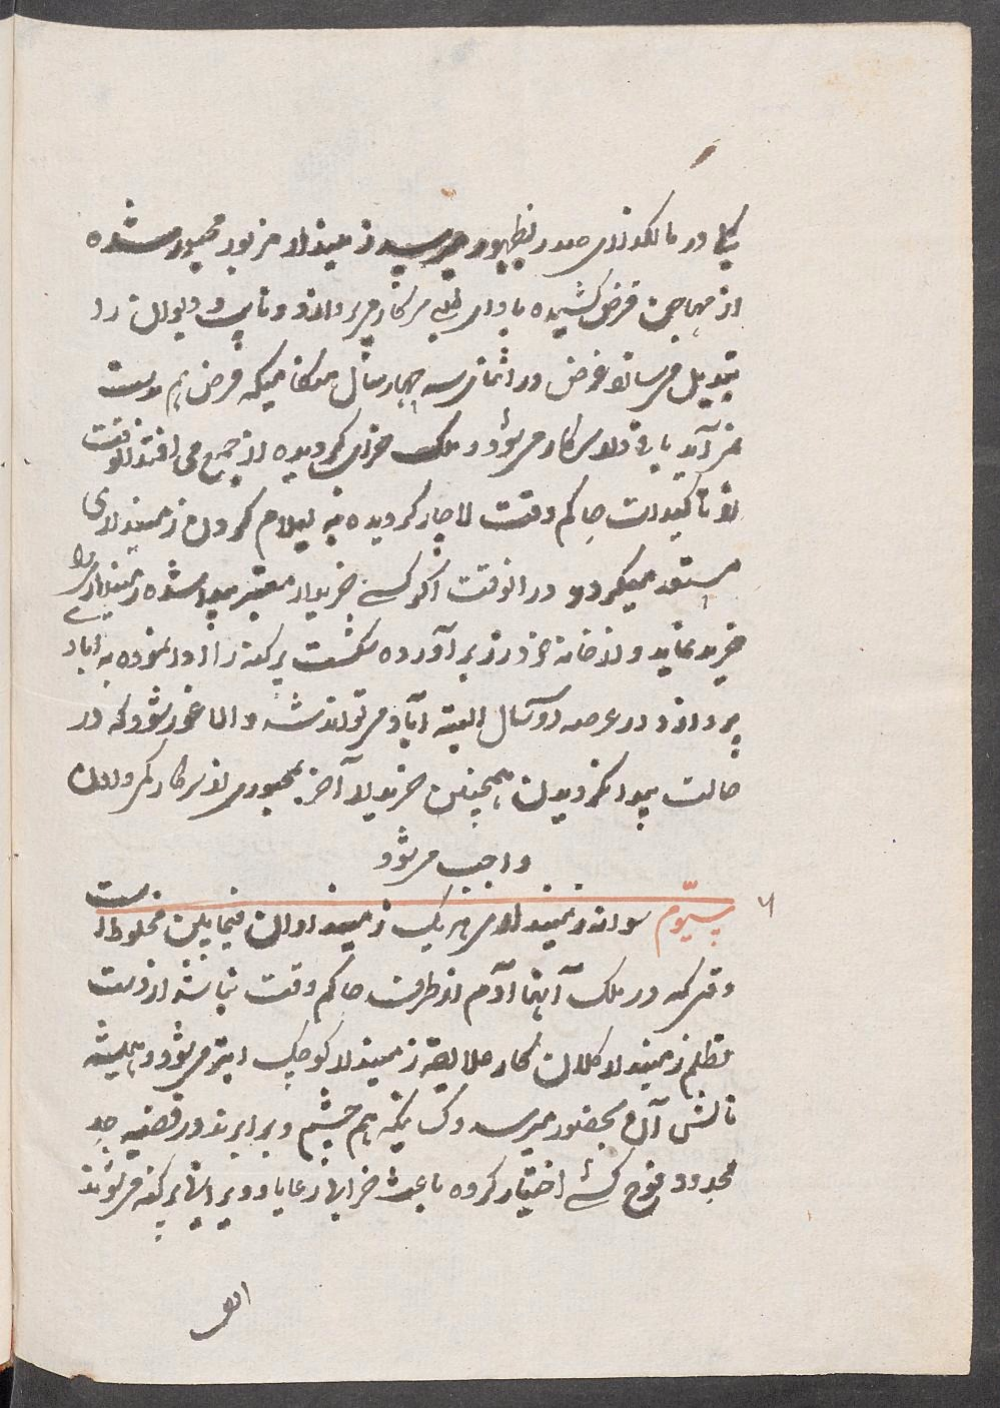 در مالگذاری صدر بظهور میرسد زمیندار مزبور مجبور شده
از مهاجن قرض کشیده باداے طلب سرکار می پردازد و تا پٹ و دیوالن را
تبدیل میرساند غرض در اثنای سه چهار سال همکامیکه قرض هم بدست
نمی آید باقی دار سرکار میشود و ملک خراب گردیده از جمع می افتد انوقت
از تاکیدات حاکم وقت لاچار گردیده به نیلام کردن زمینداری
مستعد میگردد در انوقت اگر کسے خریدار معتبر پیدا شده زمینداری را
خرید نماید و از خانه خود زر برآورده شکست پرگنه را ادا نموده به اباد
پردازد در عرصه دو سال البته آباد میتواند شد و الا غور شود که در
حالت پیدا نگردیدن همچنین خریدار آخر بمجبوری از سرکار
واجب میشود
۶ سیوم سوانه زمینداری هر یک زمینداران فیمابین مخلوط است
وقتی که در ملک آنها آدم از طرف حاکم وقت نباشد از دست
تظلم زمیندار کلان کار علاقه زمیندار کوچک ابتر میشود و همیشه
نالش آن بحضور میرسد و کسانیکه هم چشم و برابرند در قضیه
حدود فوج کشے اختیار کرده باعث خرابی رعایا و ویرانی پرگنه میشوند